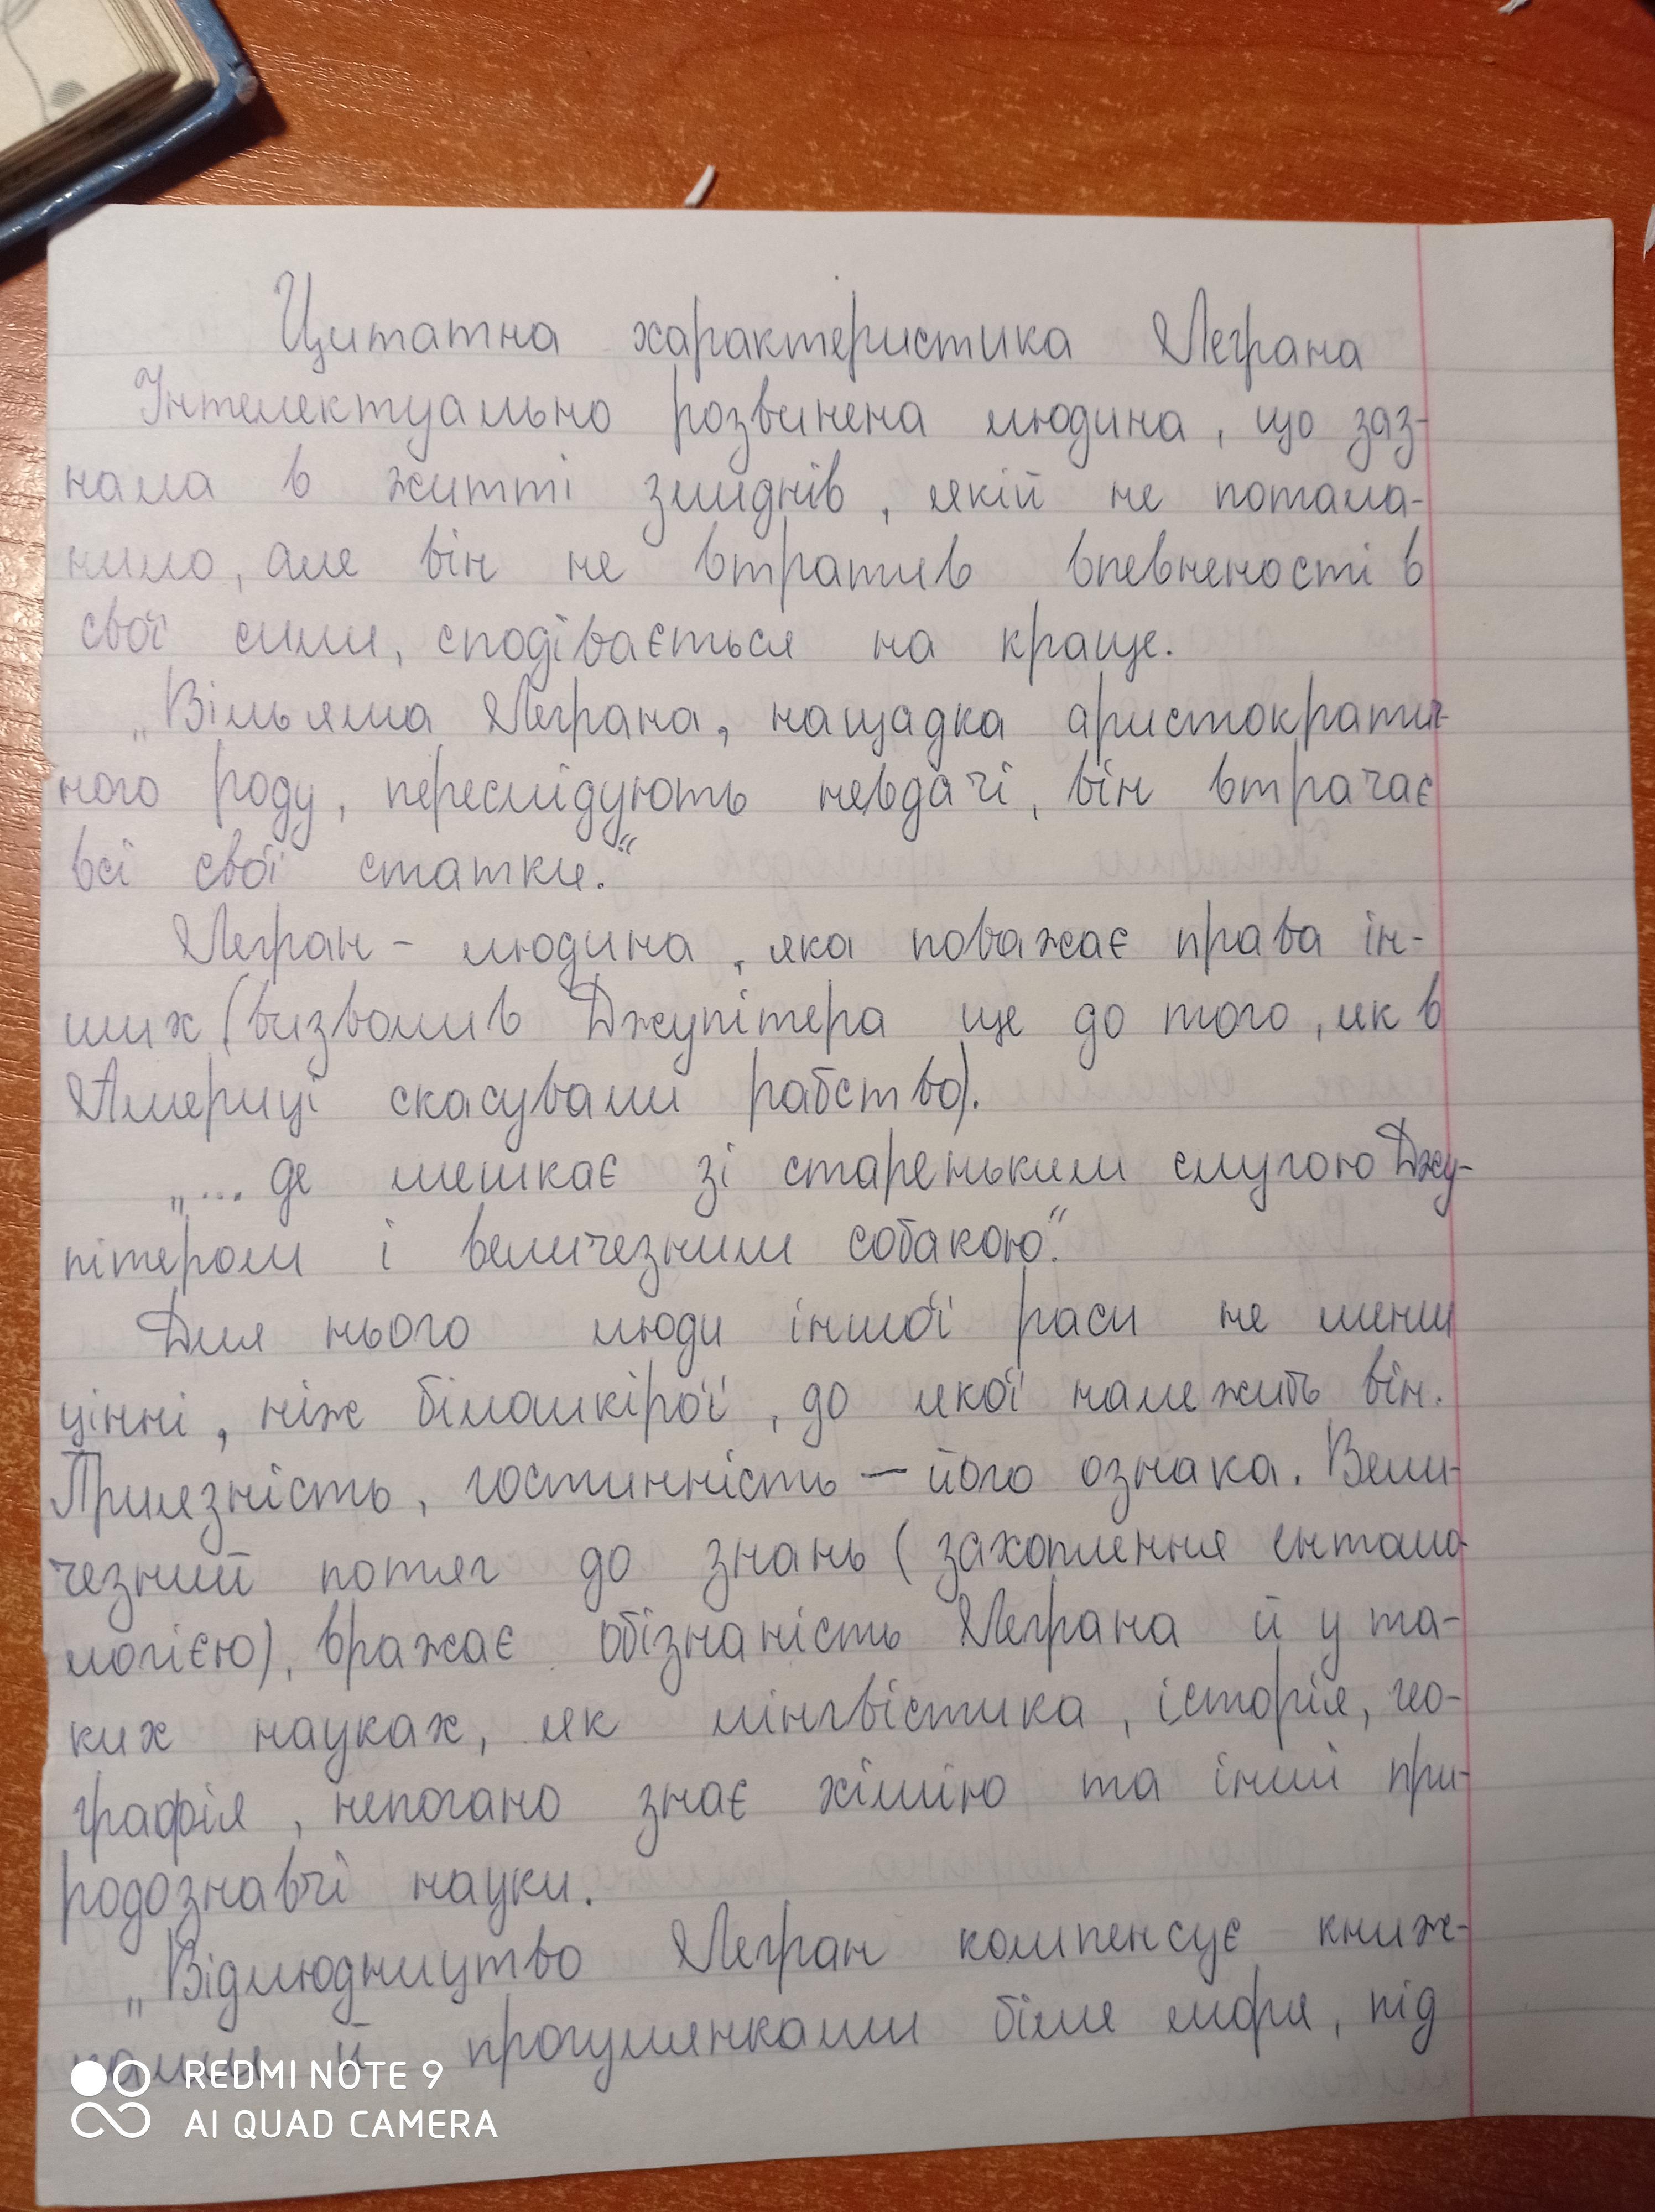 Цитатна характеристика Леграна
Інтелектуально розвинена людина, що заз-
нала в житті злиднів, якій не потала-
нило, але він не втратив впевнености в
свої сили, сподівається на краще.
„Вільяма Леграна, нащадка аристократич-
ного роду, переслідують невдачі, він втрачає
всі свої статки.“
Легран - людина, яка поважає права ін-
ших (визволив Джупітера ще до того, як в
Америці скасували рабство).
„... де мешкає зі стареньким слугою Джу-
пітером і величезним собакою.“
Для нього люди іншої раси не менш
цінні, ніж білошкірої, до якої належить він.
Приязність, гостинність - його ознака. Вели-
чезний потяг до знань (захоплення ентомо-
логією), вражає обізнаність Леграна й у та-
ких науках, як лінгвістика, історія, гео-
графія, непогано знає хімію та інші при-
родознавчі науки.
„Відлюдництво Легран компенсує книж-
ками й прогулянками біля моря, під
REDMI NOTE 9
AI QUAD CAMERA